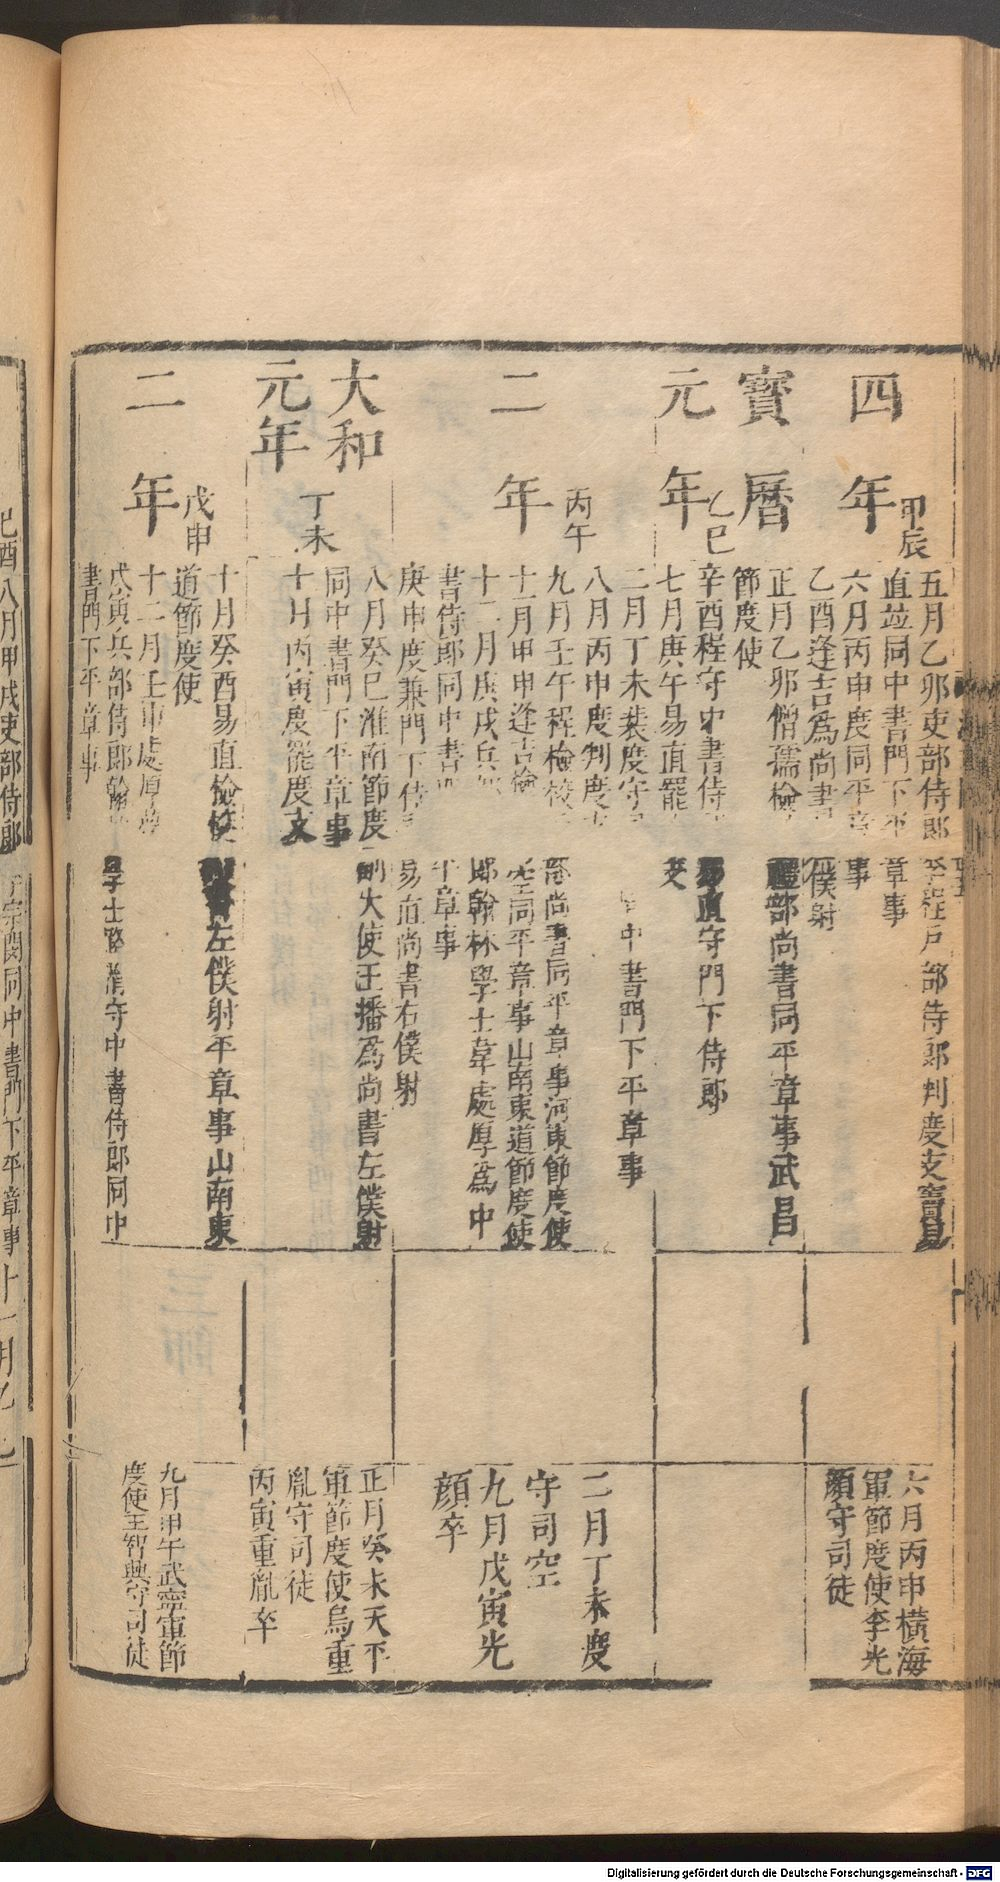 四年 甲辰
五月乙卯吏部侍郎
李程戶部侍郎判度支竇易
直竝同中書門下平
章事
六月丙申度同平章
事
乙酉逢吉爲尚書
僕射
六月丙申橫海
軍節度使李光
顏守司徒
寶曆
元年 乙巳
正月乙卯僧孺檢
禮部尚書同平章事武昌
節度使
辛酉程守中書侍
易直守門下侍郎
七月庚午易直罷
支
二年 丙午
二月丁未裴度守
中書門下平章事
八月丙申度判度
九月壬午程檢校
部尚書同平章事河東節度使
十一月甲申逢吉檢
空同平章事山南東道節度使
十二月庚戌兵
郎翰林學士韋處厚爲中
書侍郎同中書
平章事
庚申度兼門下侍
易直尚書右僕射
二月丁未度
守司空
九月戊寅光
顏卒
大和
元年 丁未
八月癸巳淮南節度
副大使王播爲尚書左僕射
同中書門下平章事
十月丙寅度罷度支
正月癸未天平
軍節度使烏重
胤守司徒
丙寅重胤卒
二年 戊申
十月癸酉易直檢校
左僕射平章事山南東
道節度使
十二月壬申處厚薨
戊寅兵部侍郎翰
學士路隋守中書侍郎同中
書門下平章事
九月甲午武寧軍節
度使王智興守司徒
己酉八月甲戌吏部侍郎
李宗閔同中書門下平章事十一月乙
Digitalisierung gefördert durch die Deutsche Forschungsgemeinschaft - DFG